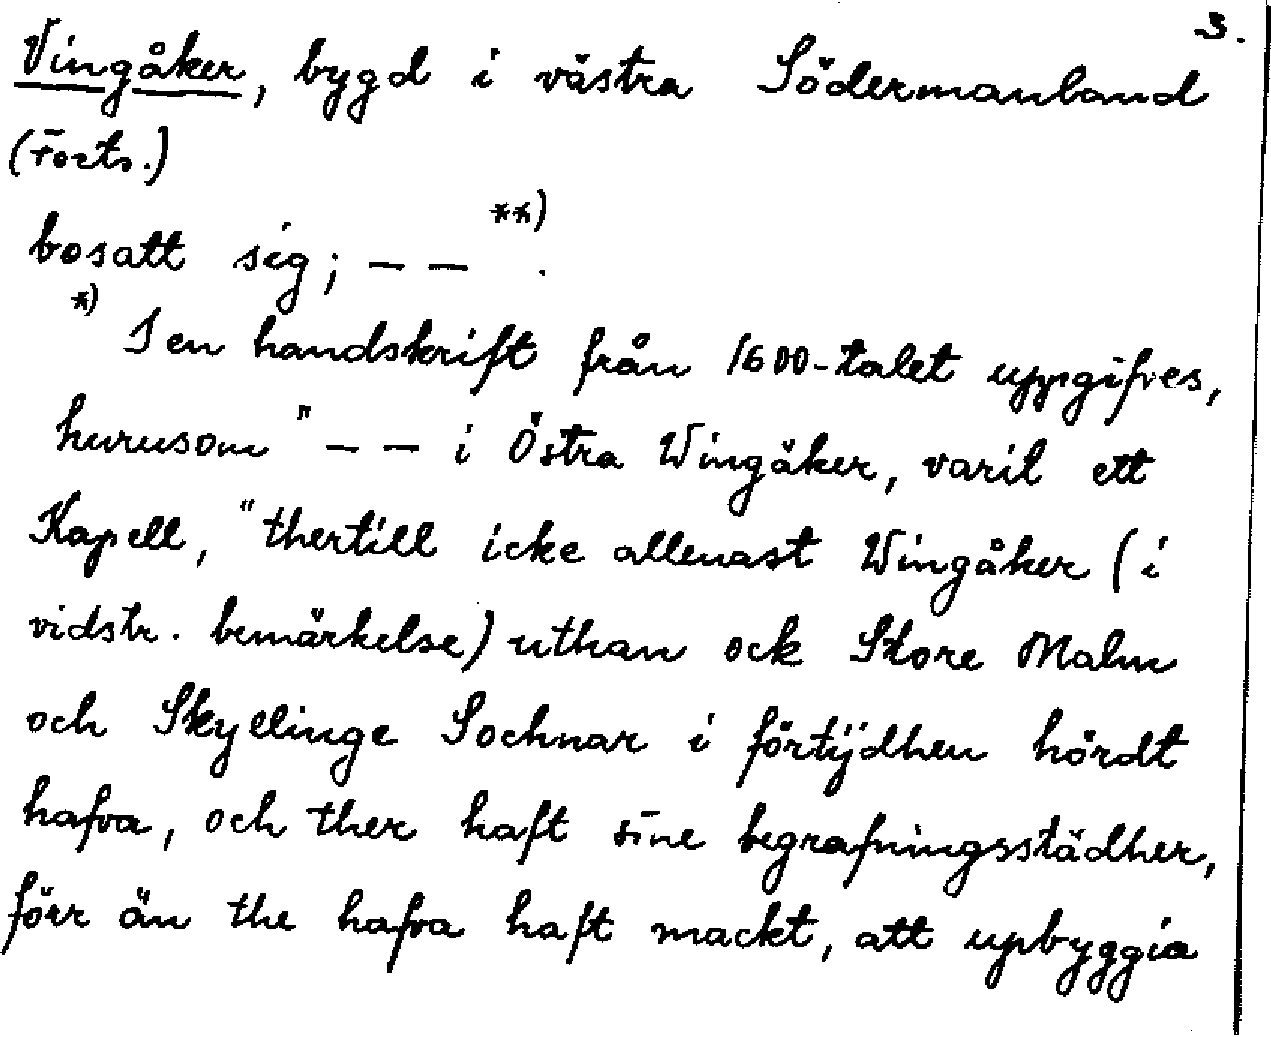 3.
Vingåker, bygd i västra Södermanland
(Forts.)
bosatt sig; — — **).
*) I en handskrift från 1600-talet uppgifves,
hurusom "— — i Östra Wingåker, varit ett
Kapell, "thertill icke allenast Wingåker (i
vidstr. bemärkelse) uthan ock Store Malm
och Skyllinge Sochnar i förtijdhen hördt
hafva, och ther haft sine begrafningsstädher,
förr än the hafva haft mackt, att upbyggia